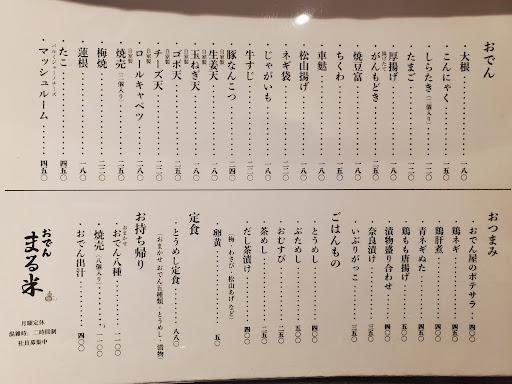 おでん
・大根 一八〇
・こんにゃく 一五〇
・しらたき(二個入り) 一五〇
・たまご 一五〇
・厚揚げ 一八〇
揚げたて
・がんもどき 二五〇
・焼豆富 一八〇
・ちくわ 一五〇
・車麩 一八〇
・松山揚げ 一八〇
・ネギ袋 二二〇
・じゃがいも 一八〇
・牛すじ 二二〇
・豚なんこつ 二八〇
自家製
・生姜天
自家製
・玉ねぎ天
自家製
・ゴボ天 二五〇
自家製
・チーズ天 二二〇
自家製
・ロールキャベツ 二八〇
自家製
・焼売(二個入り) 二五〇
・梅焼 一八〇
・蓮根 一八〇
・たこ 四五〇
パルミジャーノチーズ
・マッシュルーム 四五〇
おつまみ
・おでん屋のポテサラ 四五〇
・鶏ネギ 四五〇
・鶏肝煮 四五〇
・青ネギぬた 四五〇
・鶏もも唐揚げ 四五〇
・漬物盛り合わせ 四五〇
・奈良漬け 三五〇
・いぶりがっこ 三五〇
ごはんもの
・とうめし 四〇〇
・ぶためし 四〇〇
・おむすび 二五〇
・茶めし 二五〇
・だし茶漬け 四〇〇
(梅・わさび・松山あげ など)
・卵黄 五〇
定食
・とうめし定食 八八〇
(おまかせ おでん五種類、とうめし・漬物)
お持ち帰り
おまかせ
・おでん八種 一二〇〇
・焼売(八個入り) 一一〇〇
・おでん出汁 四〇〇
おでん
まる米
月曜定休
混雑時、二時間制
社員募集中